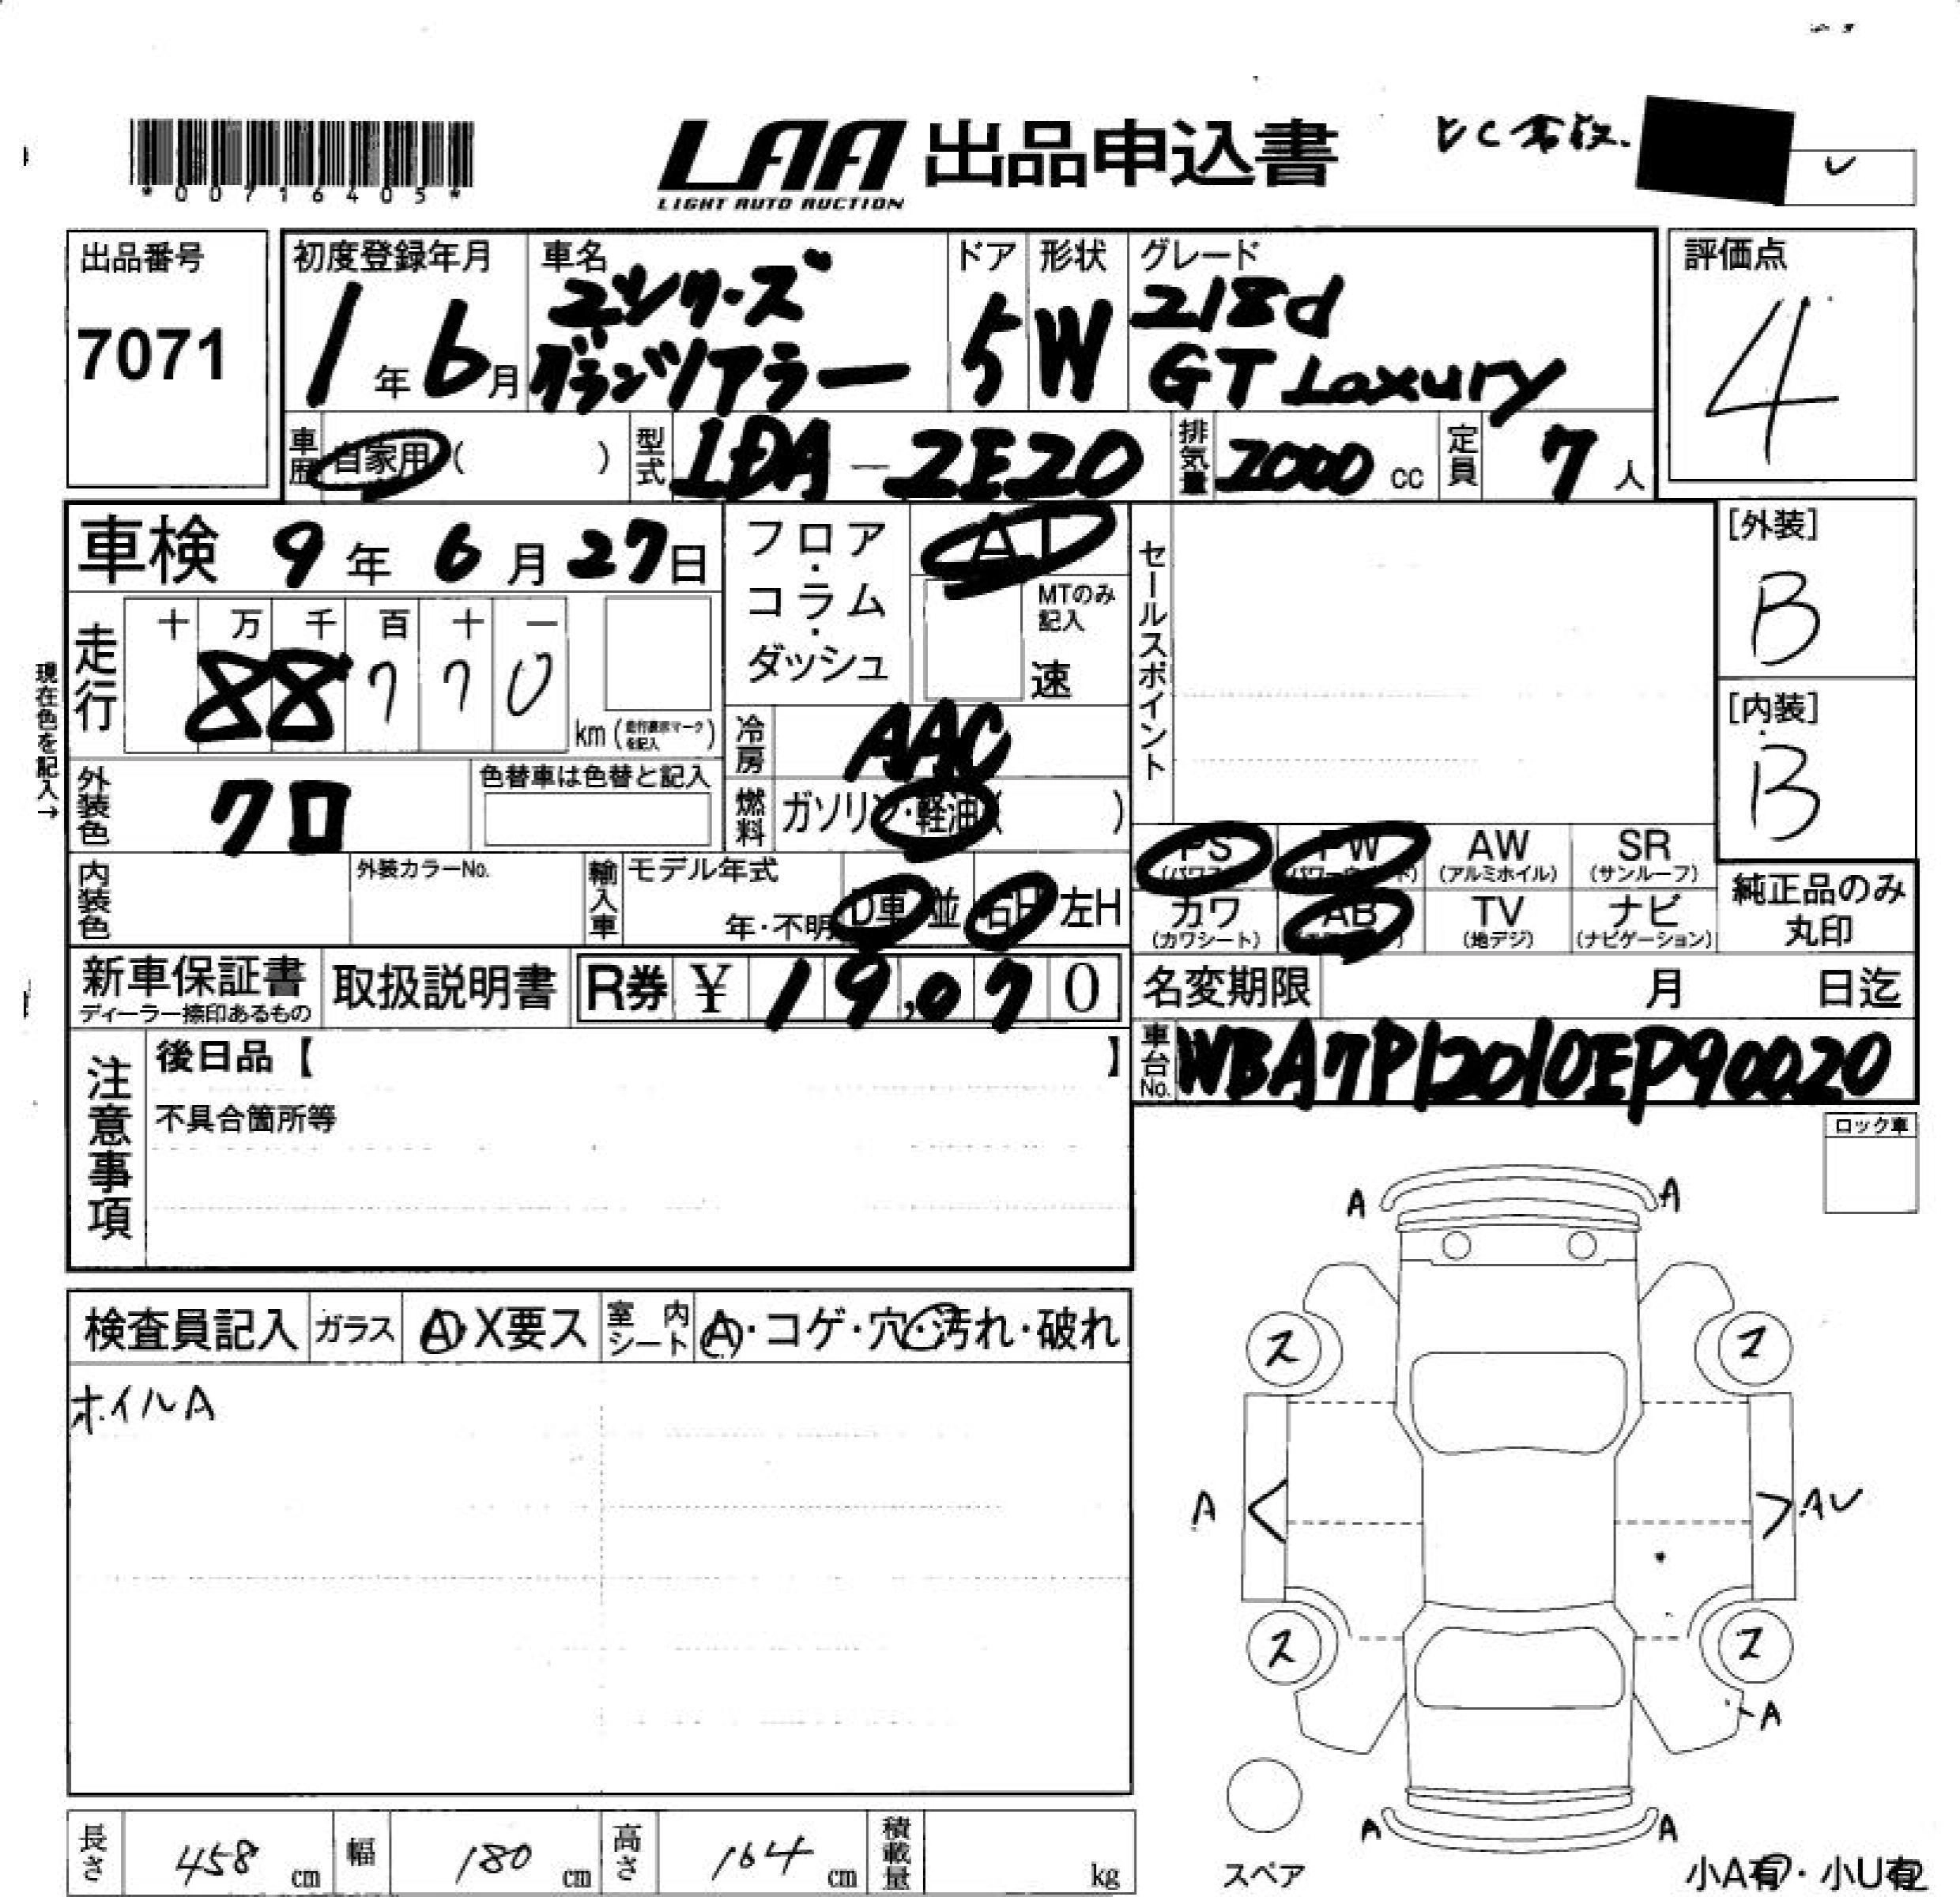 *00716405*
LAA 出品申込書
LIGHT AUTO AUCTION
出品番号 7071
初度登録年月 1年6月
車名 2シリーズ グランツアラー
ドア 5
形状 W
グレード 218d GT Luxury
評価点 4
車歴 自家用 ( )
型式 LDA-2E20
排気量 2000 cc
定員 7人
車検 9年6月27日
フロア・コラム・ダッシュ
AT
MTのみ記入
速
セールスポイント
[外装] B
[内装] B
現在色を記入→
走行 十 万 千 百 十 一
88770 km (走行表示マークを記入)
冷房 AAC
外装色 クロ
色替車は色替と記入
燃料 ガソリン・軽油( )
PS AW (アルミホイル) SR (サンルーフ)
PW
内装色
外装カラーNo.
輸入車 モデル年式
年・不明 D車 並 右H 左H
カワ (カワシート) AB TV (地デジ) ナビ (ナビゲーション)
純正品のみ丸印
新車保証書
ディーラー捺印あるもの
取扱説明書
R券 ¥ 19,070
名変期限 月 日迄
車台No. WBA7P12010EP90020
注意事項
後日品【 】
不具合箇所等
ロック車
検査員記入 ガラス A・X要ス 室内シート A・コゲ・穴・汚れ・破れ
ホイルA
A A
ス ス
A AU
ス ス
A
A A
スペア
長さ 458 cm 幅 180 cm 高さ 164 cm 積載量 kg
小A有・小U有